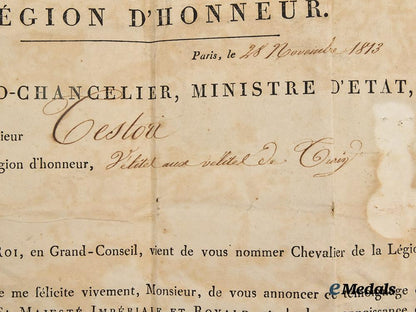 ÉGION D'HONNEUR.
Paris, le 28 Novembre 1813
D-CHANCELIER, MINISTRE D'ETAT,
sieur Teston
gion d'honneur, Vélite aux vélites de Turin
ROI, en Grand-Conseil, vient de vous nommer Chevalier de la Légio
e me félicite vivement, Monsieur, de vous annoncer ce témoignage
SA MAJESTÉ IMPÉRIALE ET ROYALE
eMedals